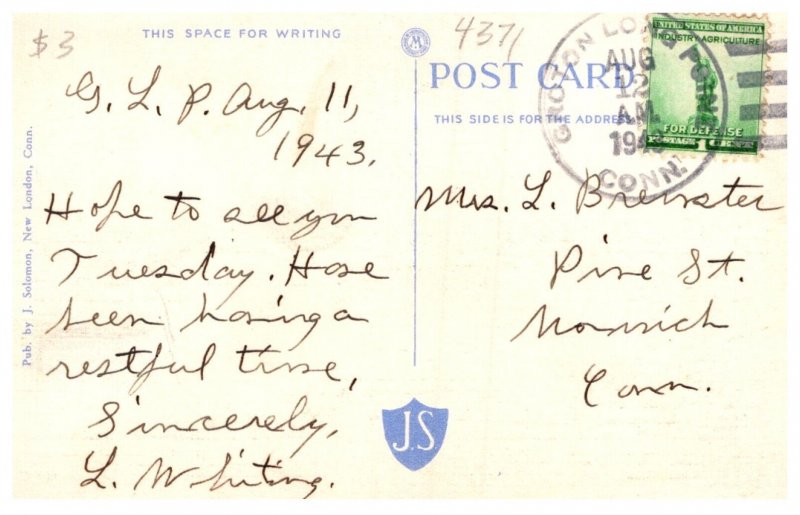 $3
THIS SPACE FOR WRITING
4371
G. L. P. Aug. 11,
1943.
Hope to see you
Tuesday. Have
been having a
restful time,
Sincerely,
L. Whiting.
Pub. by J. Solomon, New London, Conn.
M
POST CARD
THIS SIDE IS FOR THE ADDRESS
GROTON LONG POINT
AUG
12
AM
1943
CONN.
UNITED STATES OF AMERICA
INDUSTRY AGRICULTURE
FOR DEFENSE
POSTAGE 1 CENT
Mrs. L. Brewster
Pine St.
Norwich
Conn.
J.S.